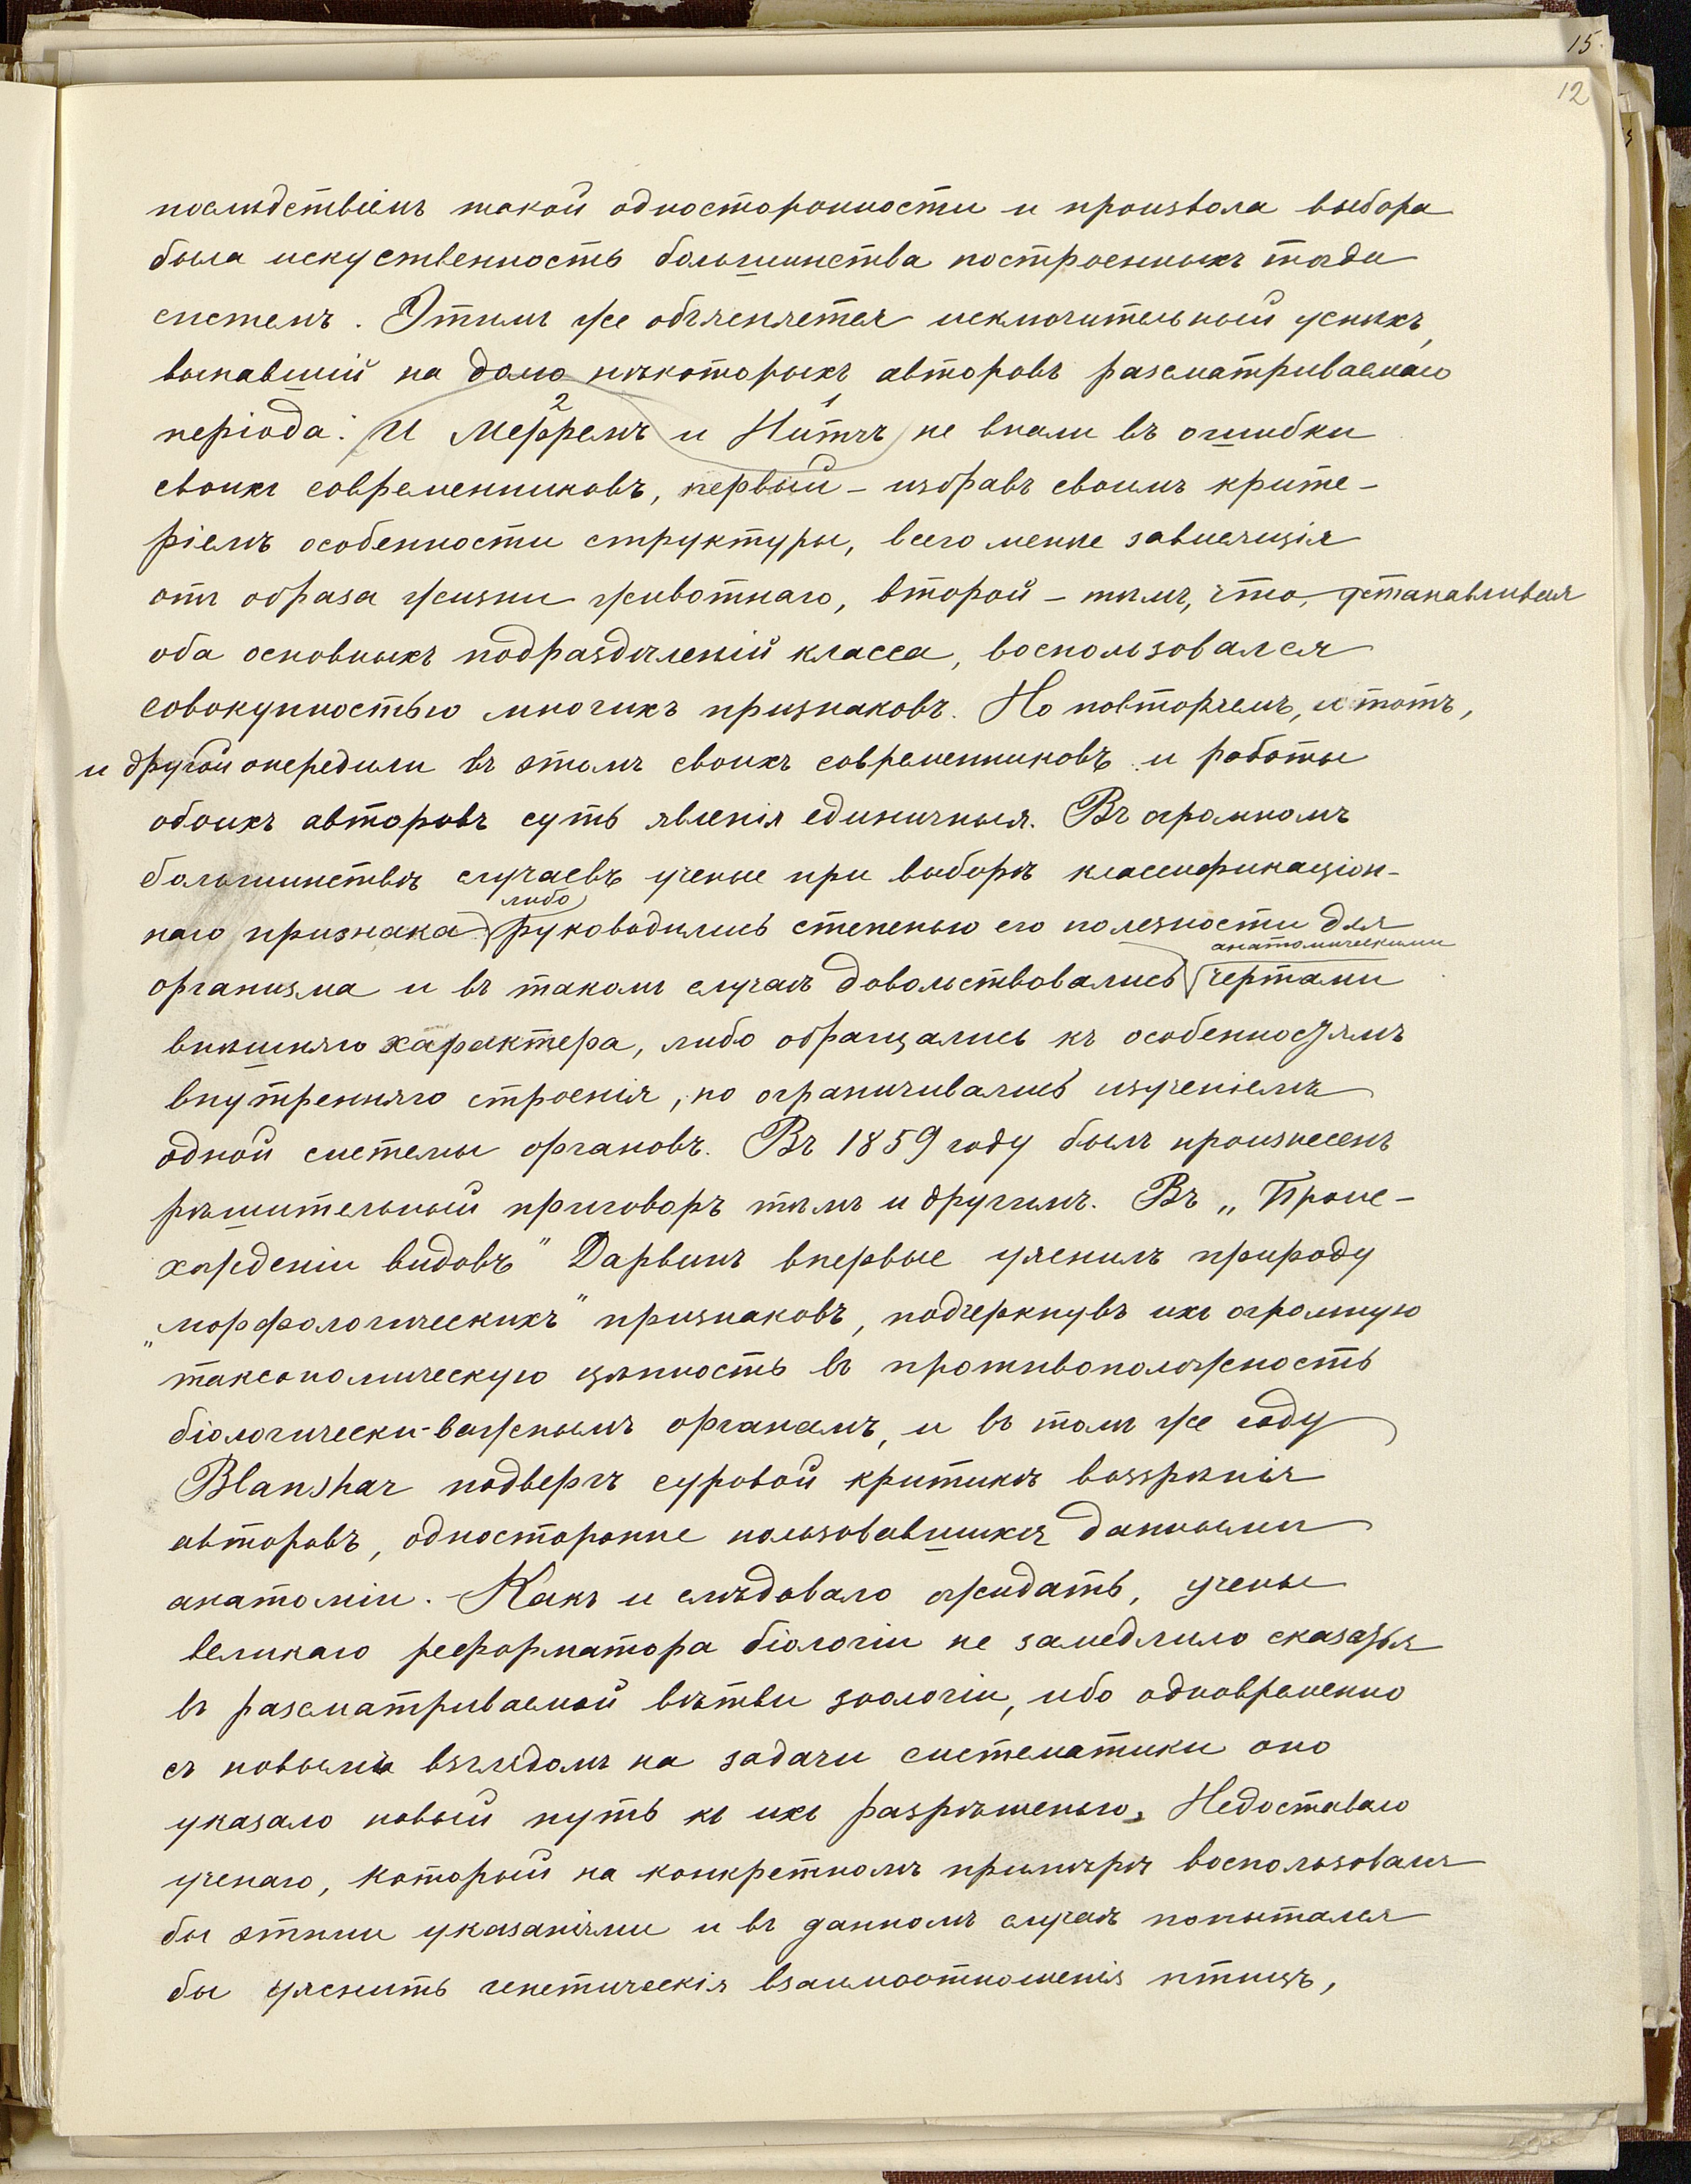 15.
12
послѣдствіемъ такой односторонности и произвола выбора
была искуственность большинства построенныхъ тогда
системъ. Этимъ же объясняется исключительный успѣхъ,
выпавшій на долю нѣкоторыхъ авторовъ разсматриваемаго
2 1
періода: И Мерремъ и Нитчъ не впали въ ошибки
своихъ современниковъ, первый - избравъ своимъ крите-
ріемъ особенности структуры, всего менѣе зависящія
отъ образа жизни животнаго, второй - тѣмъ, что, устанавливая
оба основныхъ подраздѣленій класса, воспользовался
совокупностью многихъ признаковъ. Но повторяемъ, и тотъ,
и другой опередили въ этомъ своихъ современниковъ и работы
обоихъ авторовъ суть явленія единичныя. Въ огромномъ
большинствѣ случаевъ ученые при выборѣ классификаціон-
либо
наго признака руководились степенью его полезности для
анатомическими
организма и въ такомъ случаѣ довольствовались чертами
внѣшняго характера, либо обращались къ особенностямъ
внутренняго строенія, но ограничивались изученіемъ
одной системы органовъ. Въ 1859 году былъ произнесенъ
рѣшительный приговоръ тѣмъ и другимъ. Въ „Проис-
хожденіи видовъ" Дарвинъ впервые уяснилъ природу
„морфологическихъ" признаковъ, подчеркнувъ ихъ огромную
таксономическую цѣнность въ противоположность
біологически-важнымъ органамъ, и въ томъ же году
Blanshar подвергъ суровой критикѣ воззрѣнія
авторовъ, односторонне пользовавшихся данными
анатоміи. Какъ и слѣдовало ожидать, ученье
великаго реформатора біологіи не замедлило сказаться
въ разсматриваемой вѣтви зоологіи, ибо одновременно
съ новымъ взглядомъ на задачи систематики оно
указало новый путь къ ихъ разрѣшенью. Недоставало
ученаго, который на конкретномъ примѣрѣ воспользовался
бы этими указаніями и въ данномъ случаѣ попытался
бы уяснить генетическія взаимоотношенія птицъ,